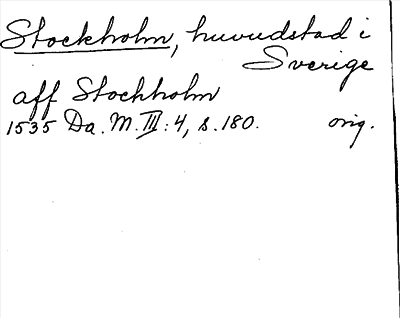 Stockholm, huvudstad i
Sverige
aff Stochholm
1535 Da. M. III: 4, s. 180. orig.